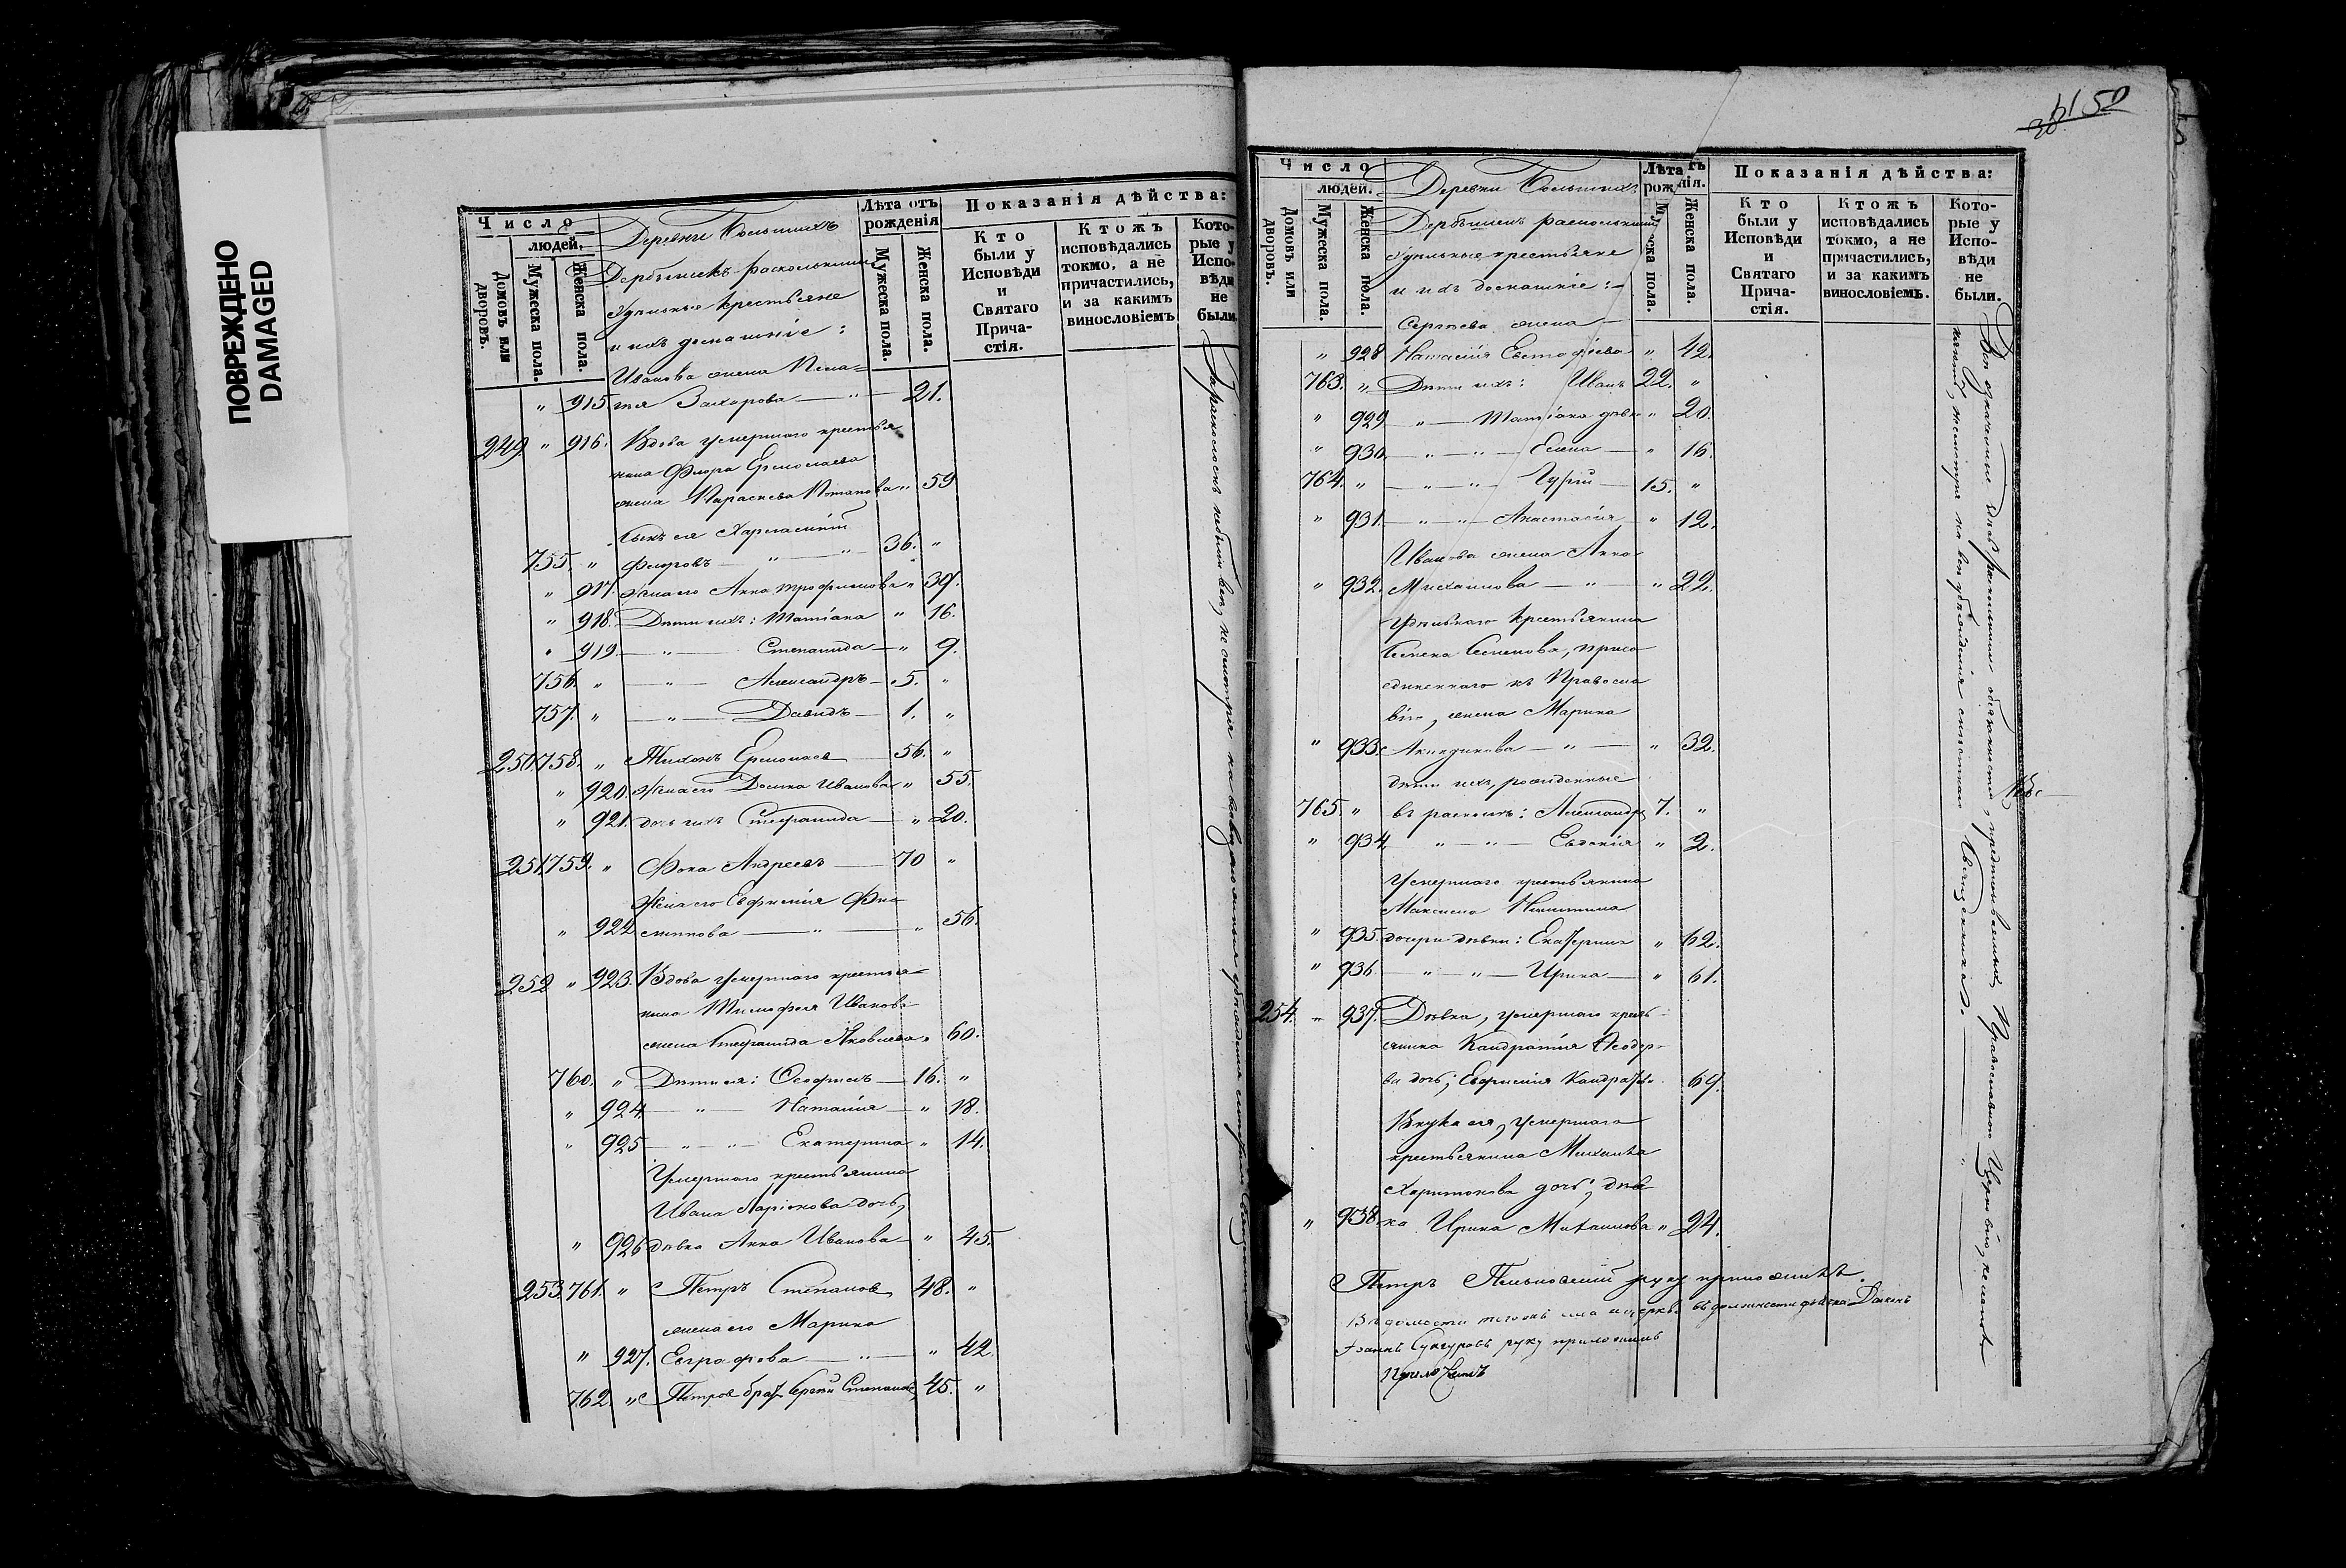 ПОВРЕЖДЕНО
DAMAGED
Число
людей.
Домовъ или дворовъ.
Мужеска пола.
Женска пола.
Деревни Большихъ
Дербышекъ раскольники
Удѣльные крестьяне
и ихъ домашніе:
Лѣта отъ рожденія
Мужеска пола.
Женска пола.
Показанія дѣйства:
Кто были у Исповѣди и Святаго Причастія.
Ктожъ исповѣдались токмо, а не причастились, и за какимъ винословіемъ
Которые у Исповѣди не были.
Иванова жена Пела=
" 915 гія Захарова — " — 21.
249 " 916. Вдова умершаго крестья
нина Флора Ермолаева
жена Параскева Потапова " 59
Сынъ ея Харлампій
755 " Флоровъ — " — 36. "
" 917. Жена его Анна Трофимова " 39.
" 918. Дѣти ихъ: Татіана " 16.
" 919. — " — Степанида — " 9.
756. " — " — Александръ — 5. "
757. " — " — Давидъ — 1. "
250 758. " Тихонъ Ермолаевъ — 56. "
" 920. Жена его Домна Иванова " 55.
" 921. дочь ихъ Стефанида — " 20.
251 759. " Фока Андреевъ — 70 "
Жена его Евфимія Фи=
" 922 липпова — " — " 56.
252 " 923. Вдова умершаго крестья=
нина Тимофея Иванова
жена Стефанида Яковлева " 60.
760. " Дѣти ея: Ѳеофилъ — 16. "
" 924 — " — Наталія — " 18.
" 925 — " — " — Екатерина " 14.
Умершаго крестьянина
Ивана Ларіонова дочь,
" 926 дѣвка Анна Иванова — " 45.
253 761. " Петръ Степановъ 48. "
жена его Марина
" 927. Евграфова — " — " 42.
762. " Петровъ братъ Сергѣй Степановъ 45. "
За расколомъ небыли вси, не смотря на всевозможныя убѣжденія
50
Число
людей.
Домовъ или дворовъ.
Мужеска пола.
Женска пола.
Деревни Большихъ
Дербышекъ раскольники
Удѣльные крестьяне
и ихъ домашніе:
Лѣта отъ рожденія.
Мужеска пола.
Женска пола.
Показанія дѣйства:
Кто были у Исповѣди и Святаго Причастія.
Ктожъ исповѣдались токмо, а не причастились, и за какимъ винословіемъ.
Которые у Исповѣди не были.
Сергѣева жена
" 928 Наталія Евстафіева " 42.
763. " Дѣти ихъ: Иванъ 22. "
" 929 — " — Татіана дѣвка " 20.
" 930 — " — " — Елена — " 16.
764. " — " — " — Гурій — 15. "
" 931. — " — " — Анастасія " 12.
Иванова жена Анна
" 932. Михайлова — " — " 22.
Удѣльнаго крестьянина
Семена Семенова, присо
единеннаго къ Правосла
вію, жена Марина
" 933. Акиндинова — " — " 32.
дѣти ихъ, рожденные
765. " въ расколѣ: Александръ 7. "
" 934. " — " — Евдокія " 2.
Умершаго крестьянина
Максима Никитина
" 935. дочери дѣвки: Екатерина " 62.
" 936 — " — " — Ирина — " 61.
254. " 937. Дѣвка, умершаго кресть=
янина Кандратія Ѳеодоро=
ва дочь, Евфимія Кандратьева 69.
Внука ея, умершаго
крестьянина Михаила
Харитонова дочь, дѣв
" 938. ка Ирина Михаилова " 24.
руку приложилъ.
въ должности Діаконъ
руку приложилъ